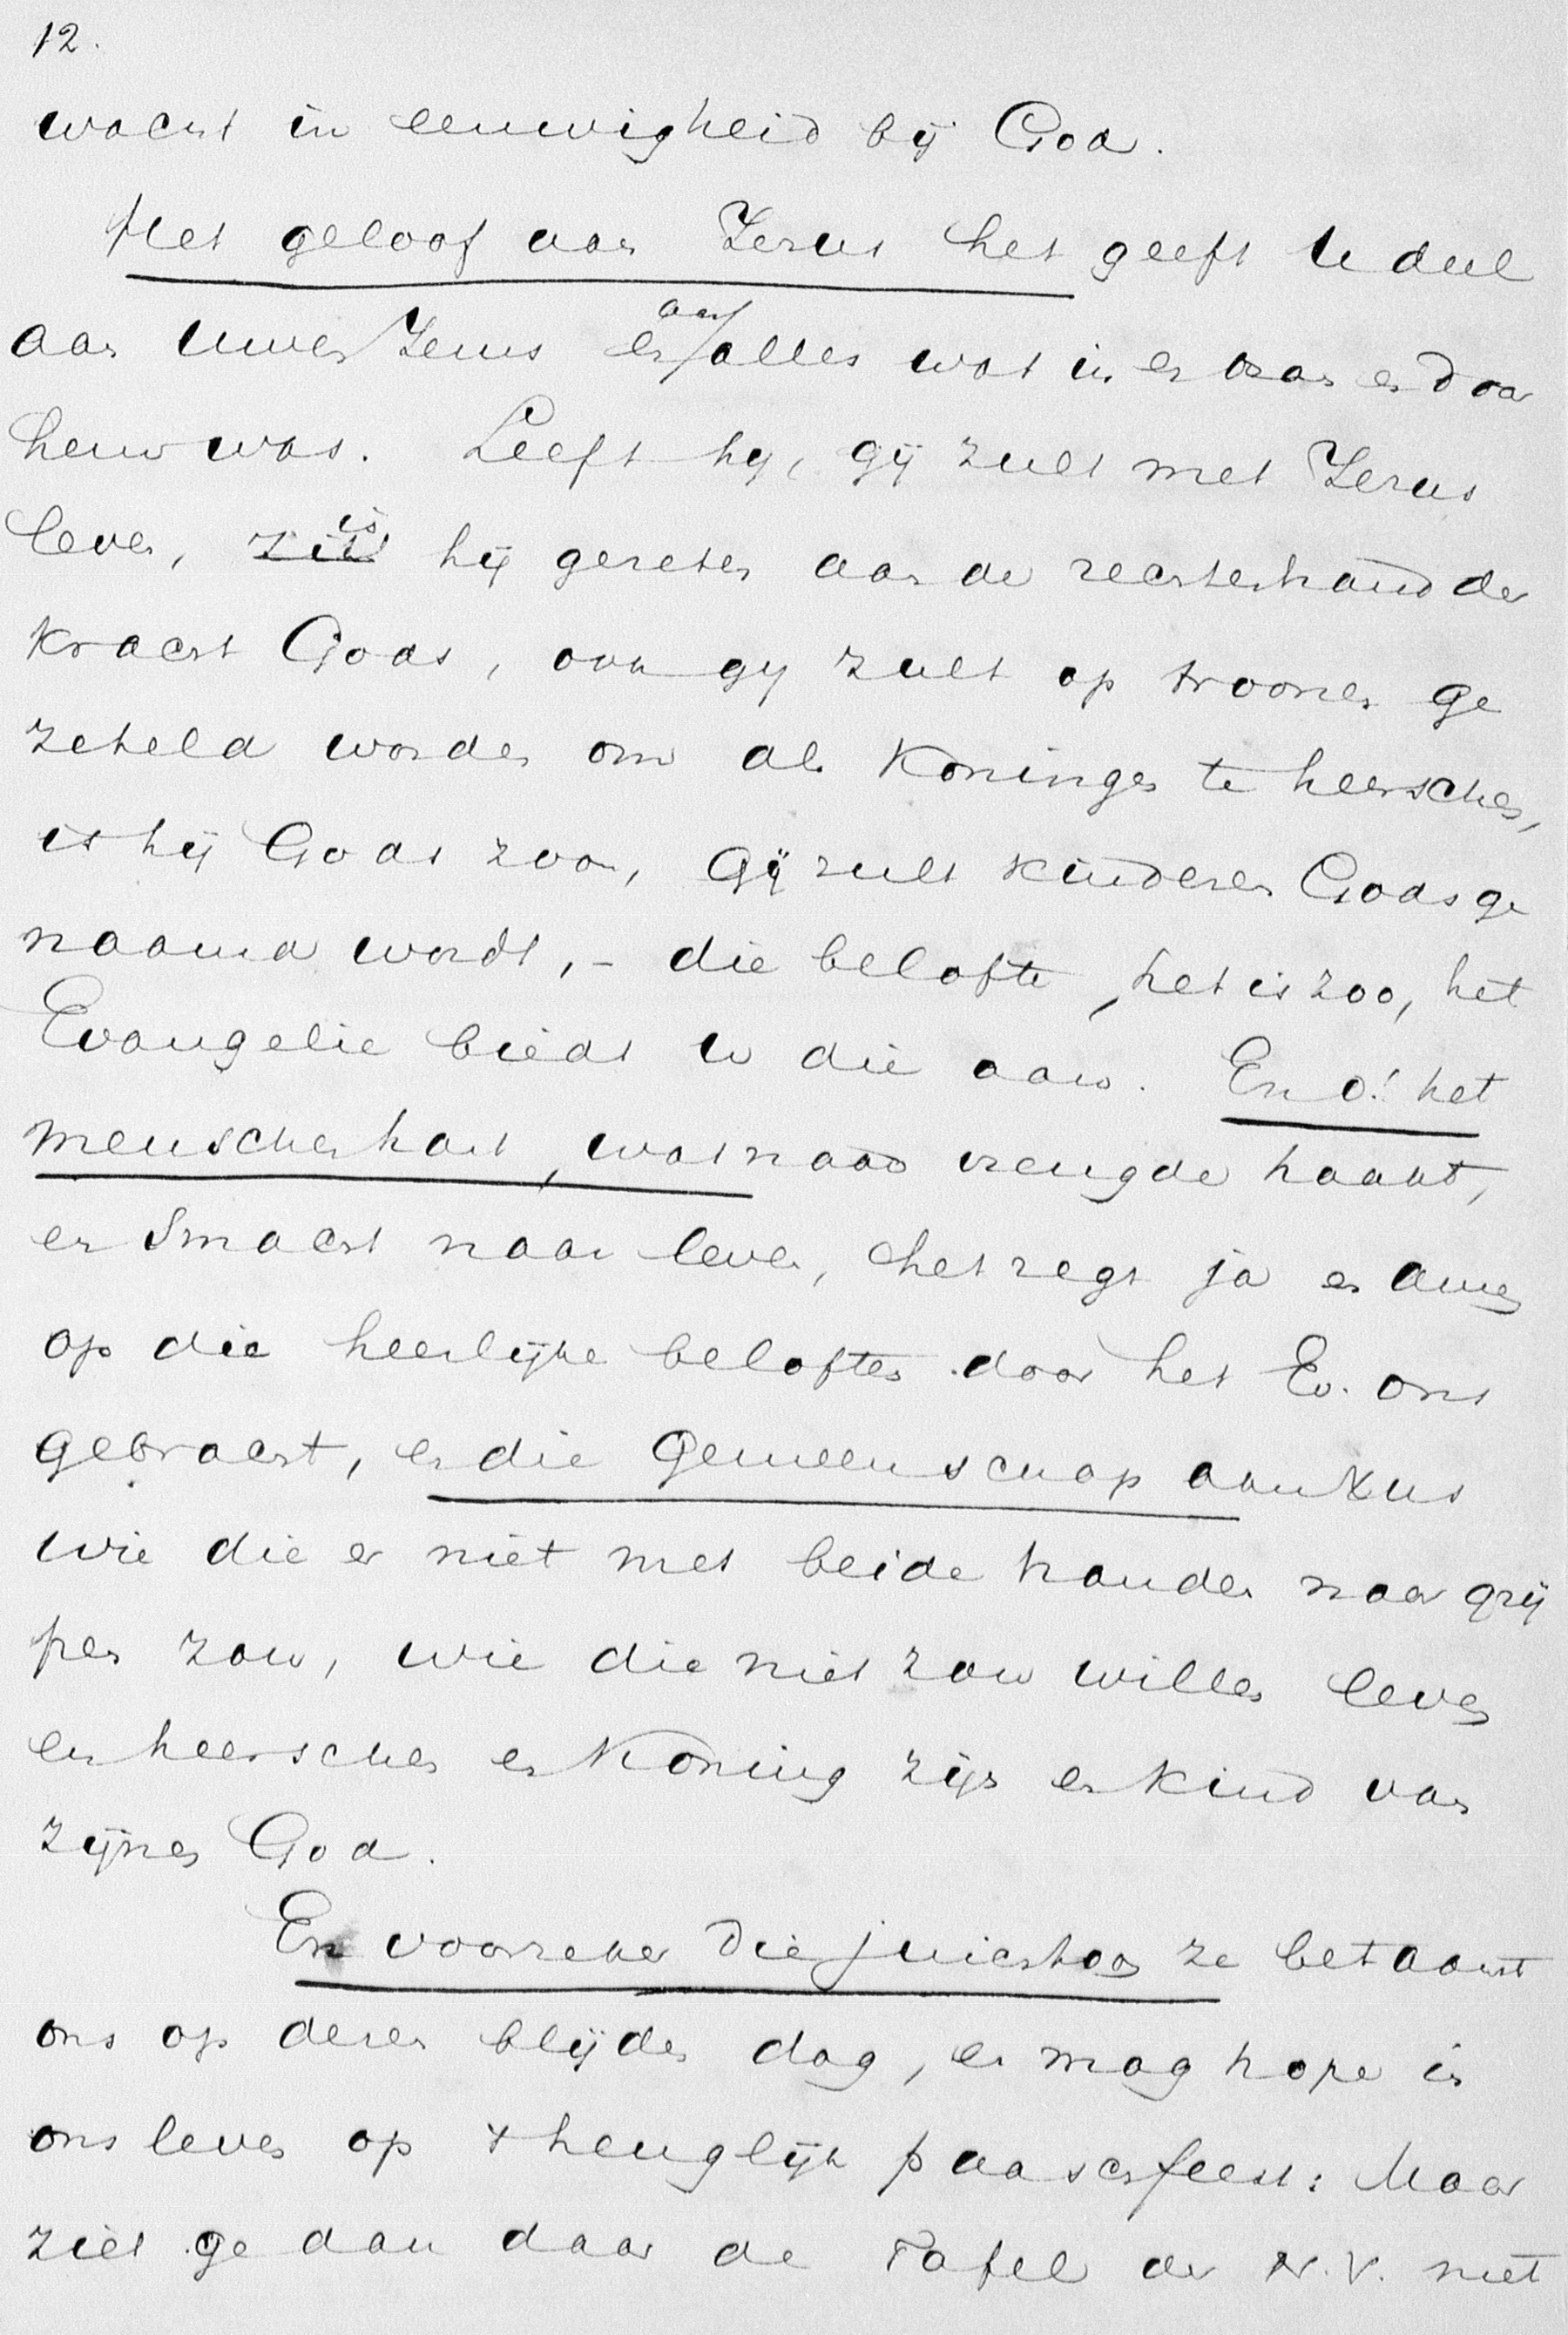 12.
wacht in eeuwigheid bij God.
Het geloof aan Jezus het geeft u deel
aan uwen Jezus en aan alles wat in en aan en door
hem was. Leeft hij, gij zult met Jezus
leven, is hij gezeten aan de rechterhand der
kracht Gods, ook gij zult op troonen ge
zeteld worden om als Koningen te heerschen,
is hij Gods zoon, Gij zult kinderen Gods ge
naamd wordt, - die belofte, het is zoo, het
Evangelie biedt u die aan. En o! het
menschenhart, wat naar vreugde haakt,
en smacht naar leven, het zegt ja en amen
op die heerlijke beloften door het Ev. ons
gebracht, en die Gemeenschap aan Xus
wie die er niet met beide handen naar grij
pen zou, wie die niet zou willen leven
en heerschen en Koning zijn en kind van
zijnen God.
En voorzeker die juichtoon ze betaamt
ons op dezen blijden dag, en mag hope in
ons leven op 't heuglijk paaschfeest: Maar
ziet ge dan daar de Tafel des N.V. niet